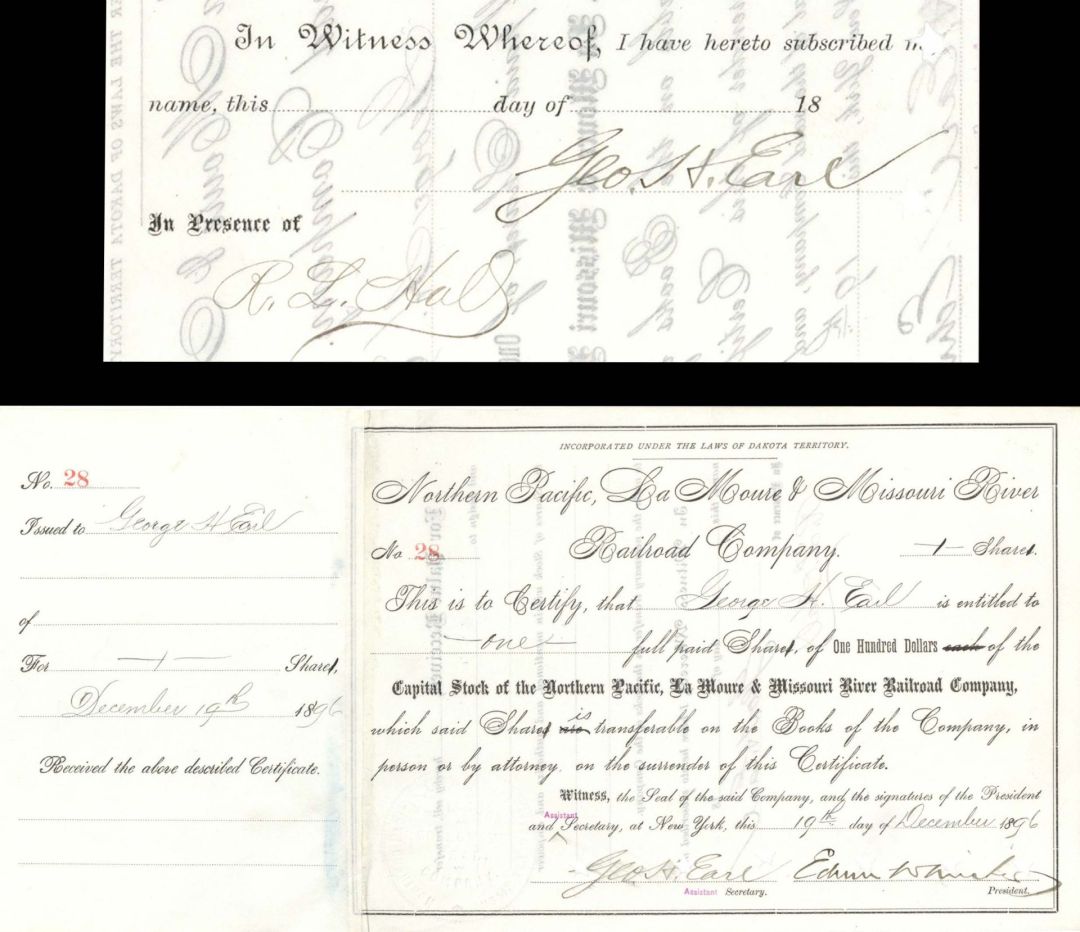 In Witness Whereof, I have hereto subscribed
name, this day of 18
Geo. H. Earl
In Presence of
R. L. Hall
No. 28
Issued to George H Earl
of
For 1 Share,
December 19th 1896
Received the above described Certificate.
INCORPORATED UNDER THE LAWS OF DAKOTA TERRITORY.
Northern Pacific, La Moure & Missouri River
No 28 Railroad Company. 1 Share.
This is to Certify, that George H. Earl is entitled to
one full paid Share, of One Hundred Dollars each of the
Capital Stock of the Northern Pacific, La Moure & Missouri River Railroad Company,
which said Share are is transferable on the Books of the Company, in
person or by attorney on the surrender of this Certificate.
Witness, the Seal of the said Company, and the signatures of the President
and Assistant Secretary, at New York, this 19th day of December 1896
Geo. H. Earl Edwin
Assistant Secretary. President.